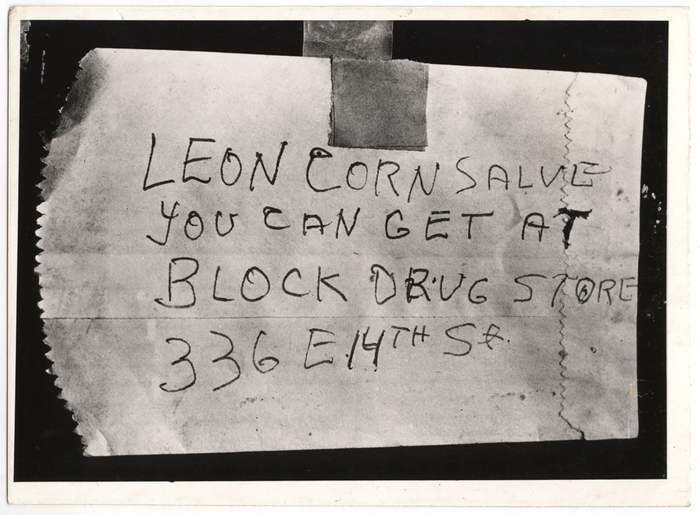 LEON CORN SALVE
YOU CAN GET AT
BLOCK DRUG STORE
336 E 14TH St.